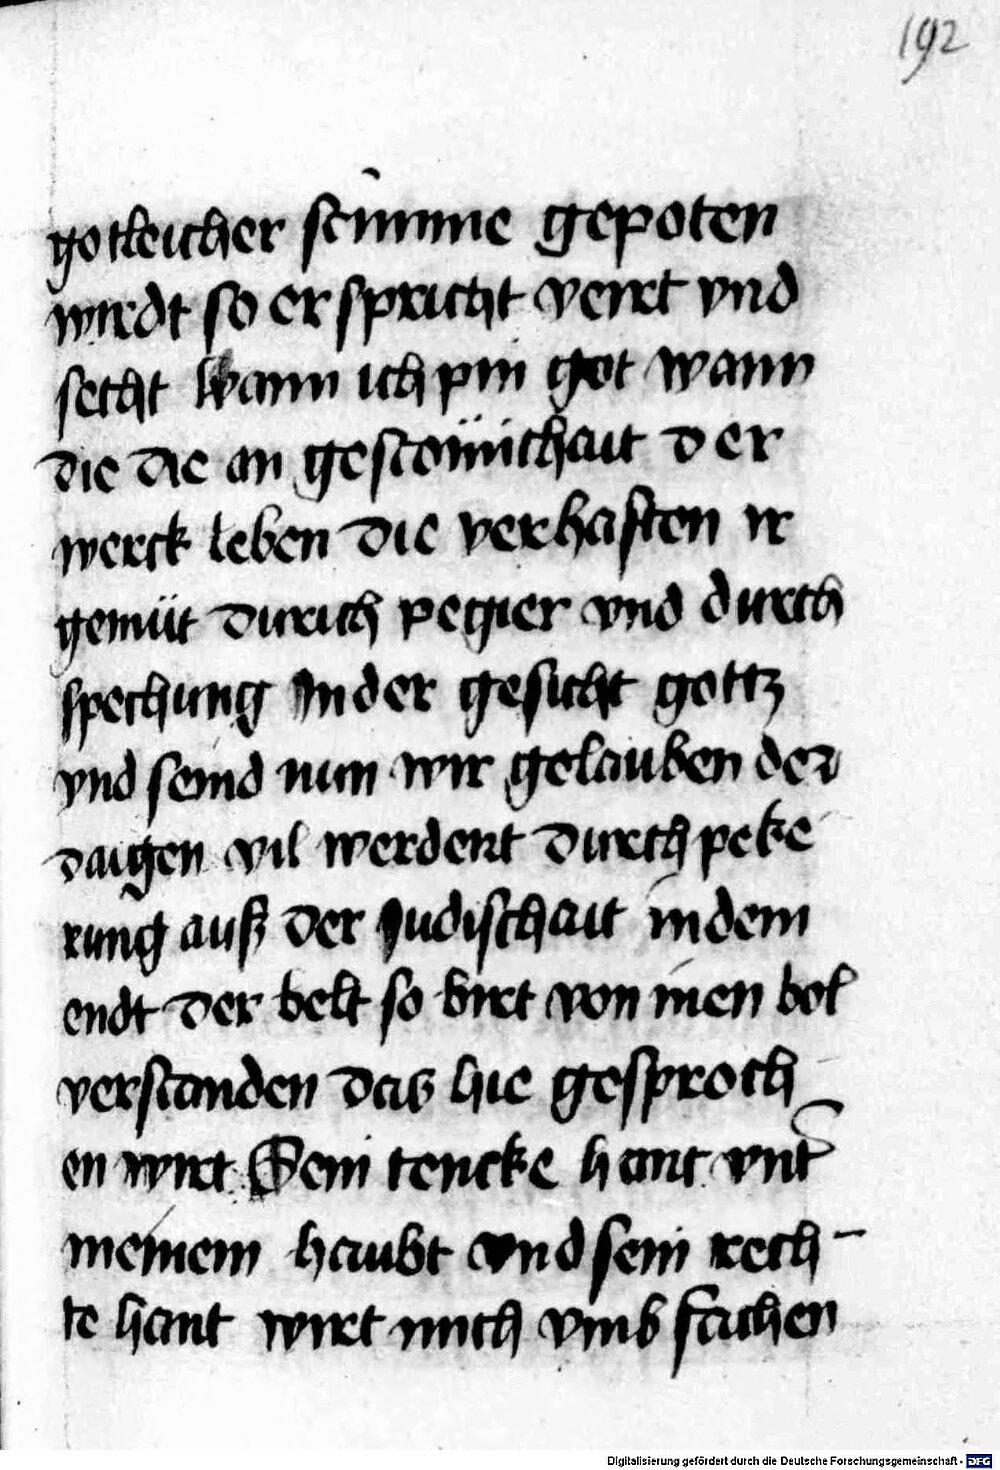 192
gotleicher stimme gepoten
wirdt so er spricht veirt vnd
secht wann ich pin got wann
die die an gestömichait der
werck leben die verhaften ir
gemüt durich pegier vnd durch
spechung In der gesicht gottz
vnd seind nun wir gelauben der
daigen vil werdent durch peke
rung auß der Judischait in dem
endt der belt so birt von inen bol
verstanden das hie gesproch
en wirt Sein tencke hant vnt
meinem haubt vnd sein rech
te hant wirt mich vmb fachen
Digitalisierung gefördert durch die Deutsche Forschungsgemeinschaft - DFG